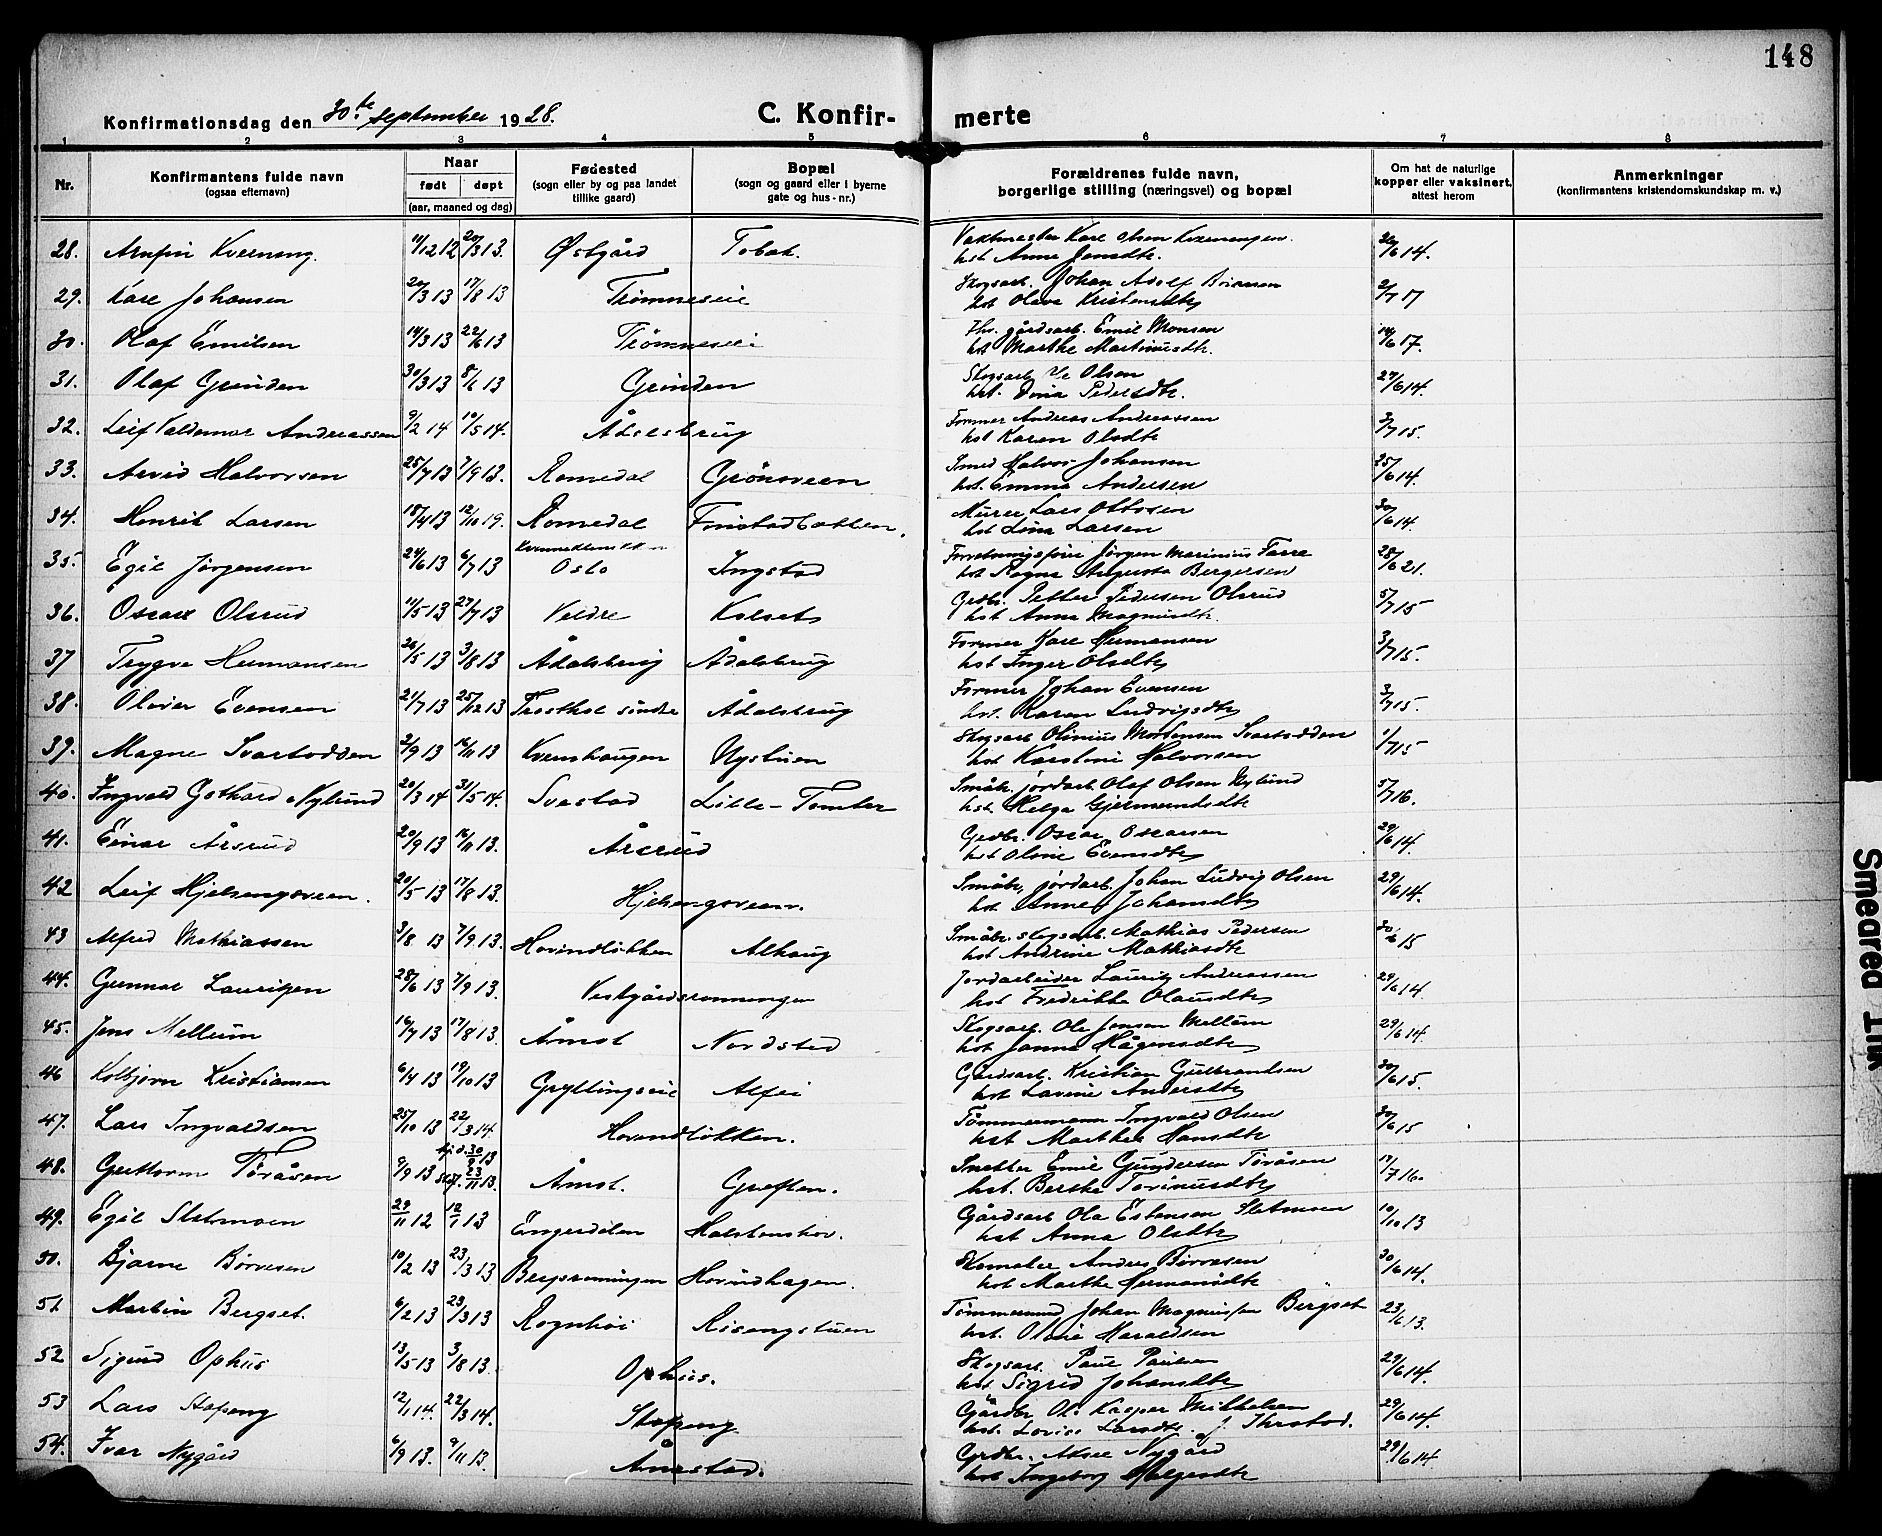 148
Konfirmationsdag den 30te september 1928. C. Konfir- merte
1 2 3 4 5 6 7 8
Nr.
Konfirmantens fulde navn
(ogsaa efternavn)
Naar
født døpt
(aar, maaned og dag)
Fødested
(sogn eller by og paa landet
tillike gaard)
Bopæl
(sogn og gaard eller i byerne
gate og hus-nr.)
Forældrenes fulde navn,
borgerlige stilling (næringsvei) og bopæl
Om hat de naturlige
kopper eller vaksinert,
attest herom
Anmerkninger
(konfirmantens kristendomskundskap m. v.)
28. Arnfin Kverneng. 11/12 12 20/3 13. Østgård Vaktmester Karl Olsen Kvernengen.
hst Anna Jensdtr. 14.
29. Kåre Johansen 20/3 13 17/8 13 Trømneseie Skogsarb. Johan Adolf
hst Olava Kristensdtr 2/7 17
30. Olaf Emilsen 14/3 13 22/6 13 Trømneseie Fhv. gårdsarb. Emil Monsen
hst Marthe Martinusdtr. 14/6 17.
31. Olaf Grinden 30/3 13 8/6 13 Grinden Skogsarb Olsen
hst. Dina Pedersdtr. 27/6 14.
32. Leif Valdemar Andreassen 9/2 14 10/5 14. Ådalsbrug Former Andreas Andreassen
hst Karen Olsdtr 3/7 15.
33. Arvid Halvorsen 25/7 13 7/9 13. Romedal Grönsveen Smed Halvor Johansen
hst. Emma Andersen 25/6 14.
34. Henrik Larsen 18/4 13 12/10 19. Romedal Murer Lars Ottosen
hst Lina Larsen 30/6 14.
35. Egil Jørgensen 24/6 13 6/7 13 Oslo Ingstad Forretningsfører Jørgen Marinius Farre
hst Ragna Augusta Bergersen 28/6 21.
36. Oscar Olsrud 11/5 13 27/7 13 Veldre Kolset Grdbr. Petter Pedersen Olsrud
hst Anna Magnusdtr. 5/7 15
37 Trygve Hermansen 26/5 13 3/8 13 Ådalsbrug Ådalsbrug Former Kare Hermansen
hst Inger Olsdtr 3/7 15.
38. Oliver Evensen 21/7 13 25/12 13 Ådalsbrug Former Johan Evensen
hst. Karen Ludvigsdtr 3/7 15.
39. Magne Svartodden 2/9 13 16/11 13 Kvernhaugen Nystuen Skogsarb Olinius Mortensen Svartodden
hst Karoline Halvorsen 1/7 15
40. Ingvald Gothard Nylund 20/3 14 31/5 14. Svestad Lille-Tomter Småbr. jordarb. Olaf Olsen Nylund
hst. Helga Gjermundsdtr 5/7 16.
41. Einar Årsrud 20/9 13 16/11 13. Årsrud Grdbr. Oscar Oscarsen
hst Oline Evensdtr 29/6 14.
42 Leif Hjelsengsveen. 20/5 13 17/8 13. Hjelsengsveen. Småbr. jordarb. Johan Ludvig Olsen
hst Anne Johansdtr 29/6 14.
43 Alfred Mathiassen 3/8 13 7/9 13. Hovindløkken Alhaug Småbr. skogsarb. Mathias Pedersen
hst Andrine Mathiasdtr 30/6 15
44. Gunnar Lauritzen 28/6 13 7/9 13. Vestgårdsrønningen Jordarbeider Lauritz Andreassen
hst Fredrikke Olausdtr 29/6 14.
45. Jens Mellum 16/7 13 17/8 13. Åmot Nordsted Skogsarb. Ole Jensen Mellum
hst Janna Hågensdtr 29/6 14.
46 Kolbjørn Kristiansen 6/4 13 19/10 13 Gryllingseie Alfei Gårdsarb. Kristian Gulbrandsen
hst Lavine Andersdtr 30/6 15.
47. Lars Ingvaldsen 25/10 13 22/3 14. Hovindløkken. Tømmermann Ingvald Olsen
hst Marthe Hansdtr 30/6 15
48. Guttorm Töråsen 9/9 13 hjd. 30/9 13
stf. 23/11 13. Åmot. Grøften. Snekker Emil Gundersen Töråsen
hst. Berthe Torinusdtr 17/7 16.
49. Egil Sletmoen 29/11 12 12/1 13 Engerdalen Halstenshov. Gårdsarb Ola Estensen Sletmoen
hst Anna Olsdtr 10/10 13
50. Bjarne Börresen 10/2 13 23/3 13 Bergsrønningen Hovindhagen. Skomaker Anders Börresen
hst Marthe Hermansdtr 30/6 14.
51 Martin Bergset. 6/2 13 23/3 13 Rognhöi Risengstuen Tömmermand Johan Magnussen Bergset
hst. Oline Haraldsen 23/6 13.
52 Sigurd Ophus 13/5 13 3/8 13. Ophus. Skogsarb. Paul Paulsen
hst Sigrid Johansdtr 29/6 14.
53 Lars Stopeng 12/1 14. 22/3 14. Stopeng Gårdbr. Ole Kasper Mikkelsen
hst. Lovise Larsdtr. 29/6 14.
54. Ivar Nygård 6/9 13. 9/11 13. Ånestad. Grdbr. Aksel Nygård
hst Ingeborg Helgesdtr 29/6 14
Smeared Ink